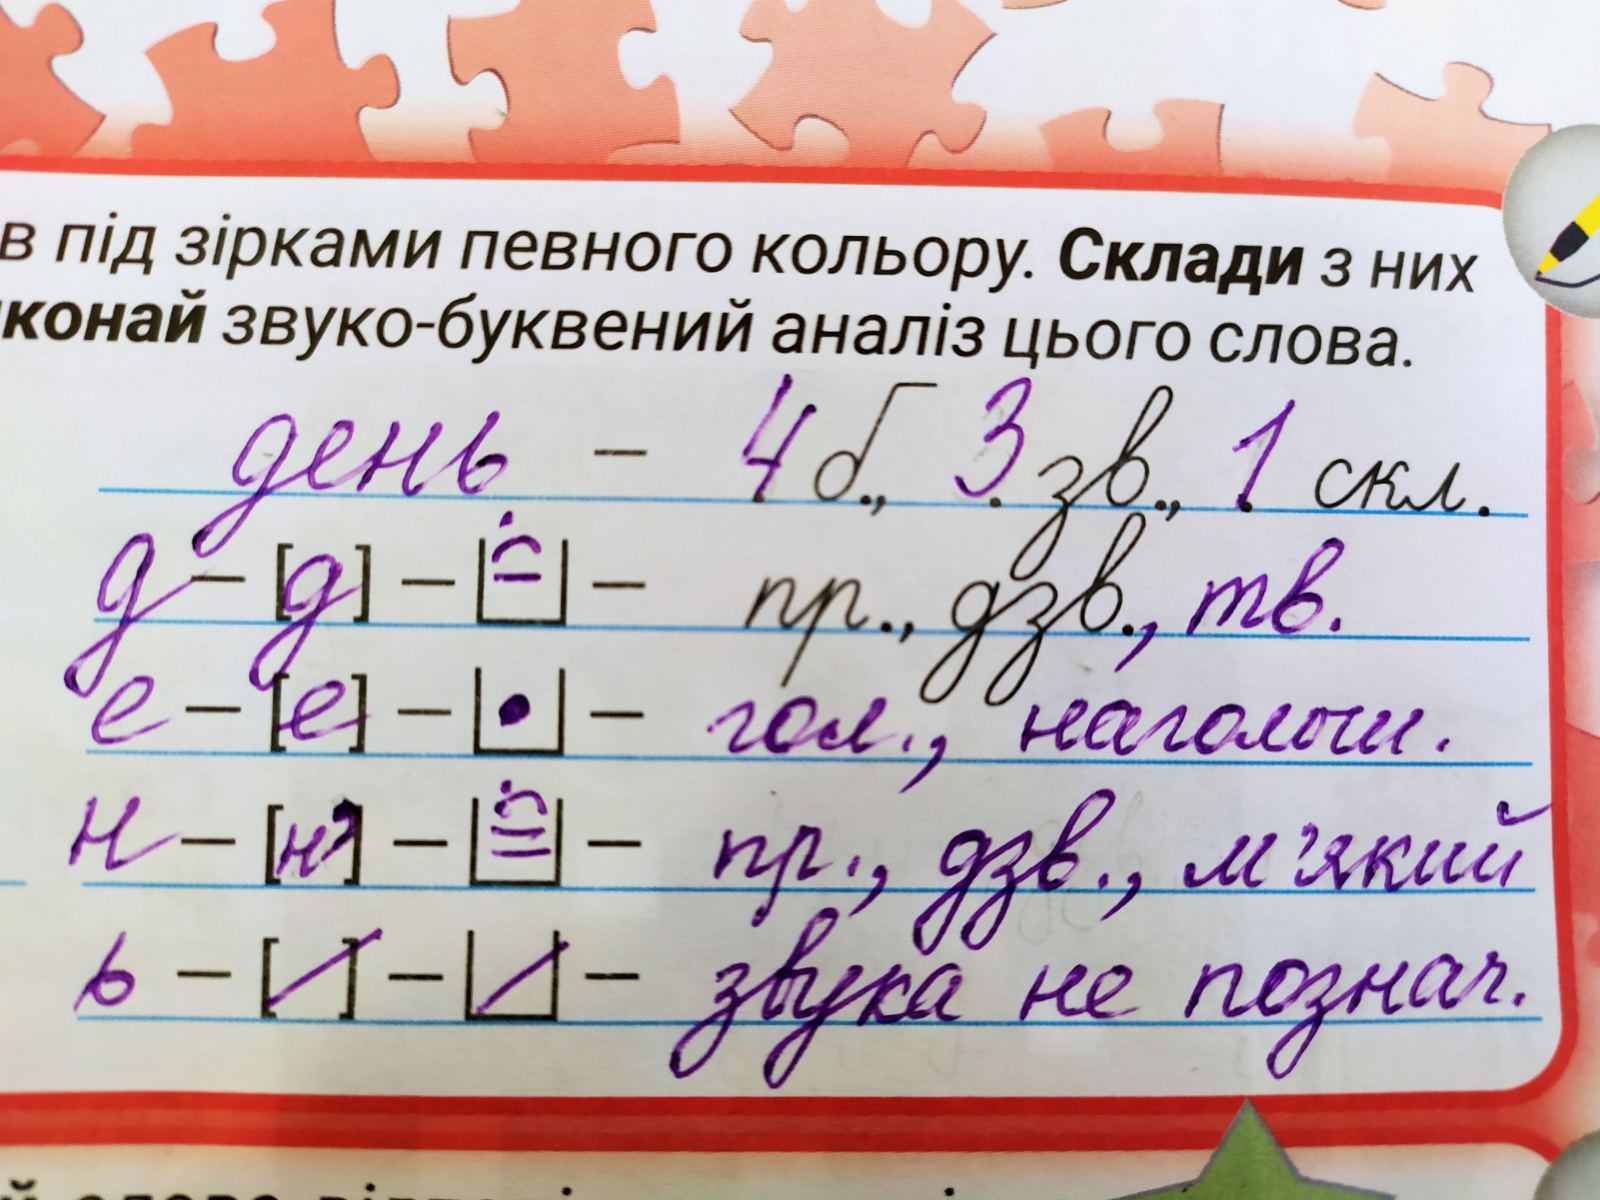 в під зірками певного кольору. Склади з них
конай звуко-буквений аналіз цього слова.
день – 4 б., 3 зв., 1 скл.
д – [д] – – пр., дзв., тв.
е – [е] – • – гол., наголош.
н – [н'] – – пр., дзв., м'який
ь – [ ] – – звука не познач.